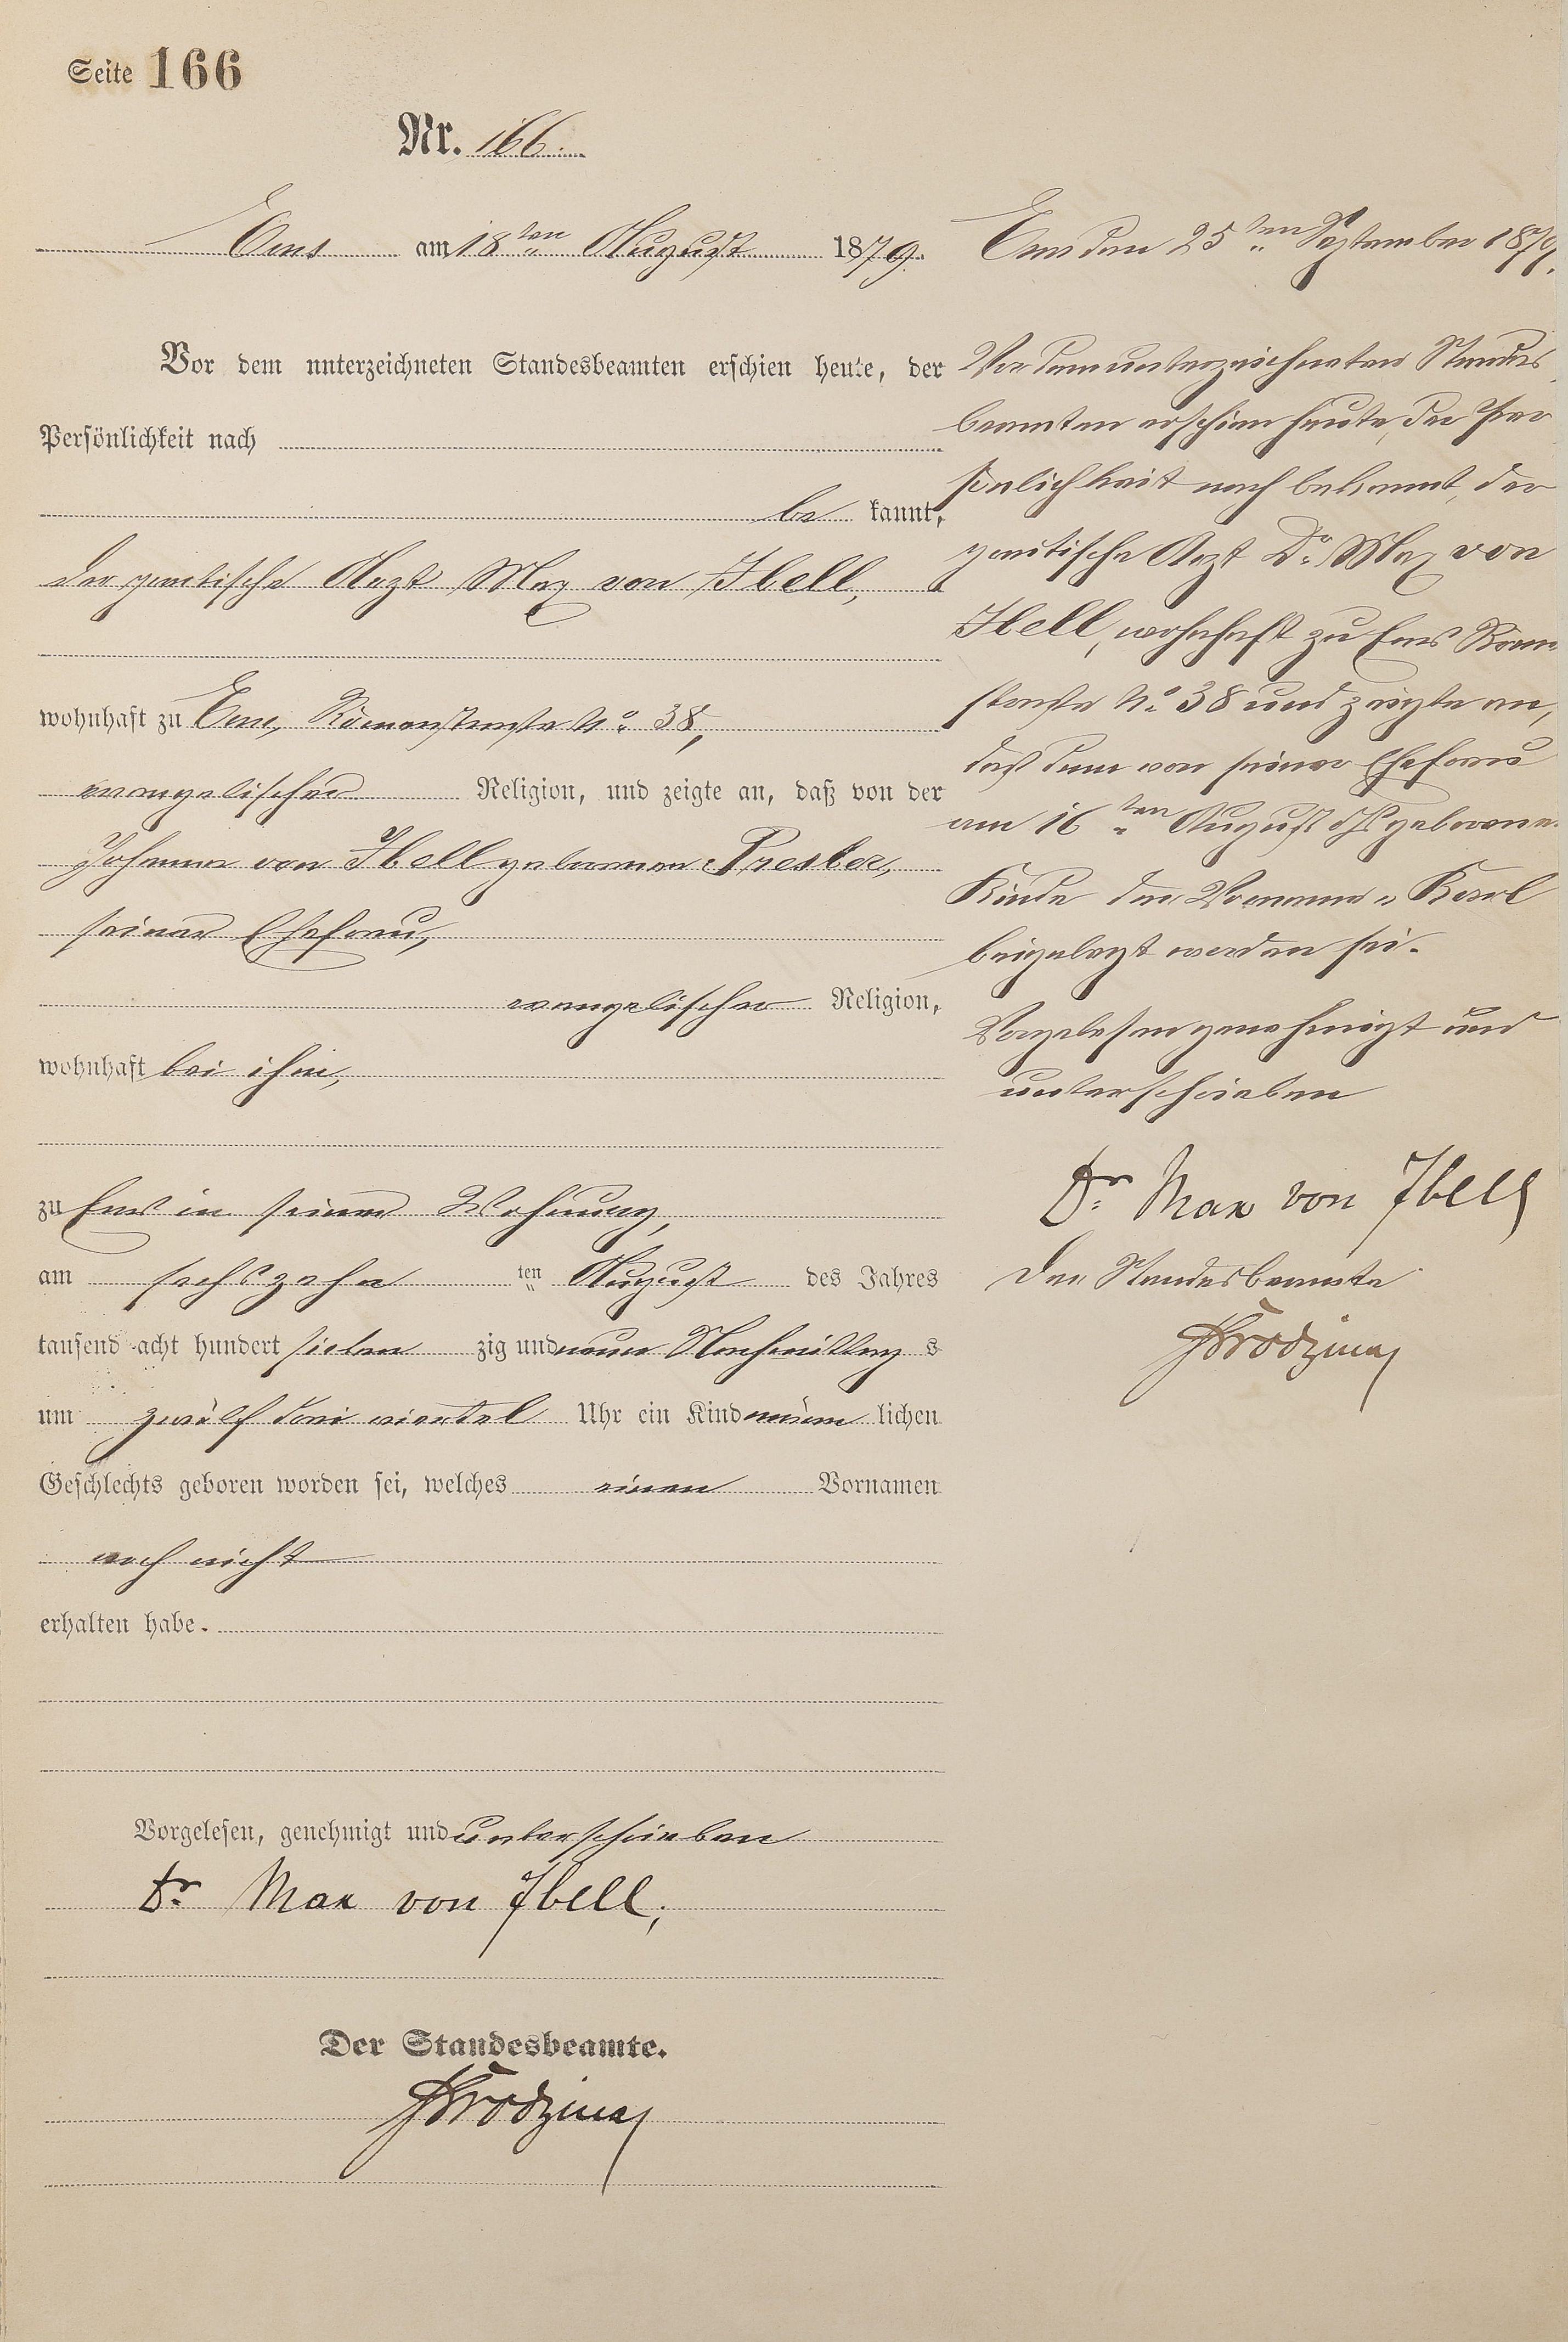 Seite 166
Nr. 166.
Ems am 18ten August 1879.
Vor dem unterzeichneten Standesbeamten erschien heute, der
Persönlichkeit nach
be kannt,
der practische Arzt Max von Ibell,
wohnhaft zu Ems, Römerstraße No. 38,
evangelischer Religion, und zeigte an, daß von der
Johanna von Ibell geborenen Presber,
seiner Ehefrau,
evangelischer Religion,
wohnhaft bei ihm,
zu Ems in seiner Wohnung,
am sechszehn ten August des Jahres
tausend acht hundert sieben zig und neun Nachmittag s
um zwölf drei viertel Uhr ein Kind männ lichen
Geschlechts geboren worden sei, welches einen Vornamen
noch nicht
erhalten habe.
Vorgelesen, genehmigt und unterschrieben
Dr. Max von Ibell,
Der Standesbeamte.
Ems den 25ten September 1879.
Vor dem unterzeichneten Standes
beamten erschien heute, der Per
sönlichkeit nach bekannt, der
practische Arzt Dr. Max von
Ibell, wohnhaft zu Ems Römer
straße No. 38 und zeigte an,
daß dem von seiner Ehefrau
am 16ten August geborenen
Kinde der Vorname „ Karl
beigelegt worden sei.
Vorgelesen genehmigt und
unterschrieben
Dr. Max von Ibell
Der Standesbeamte